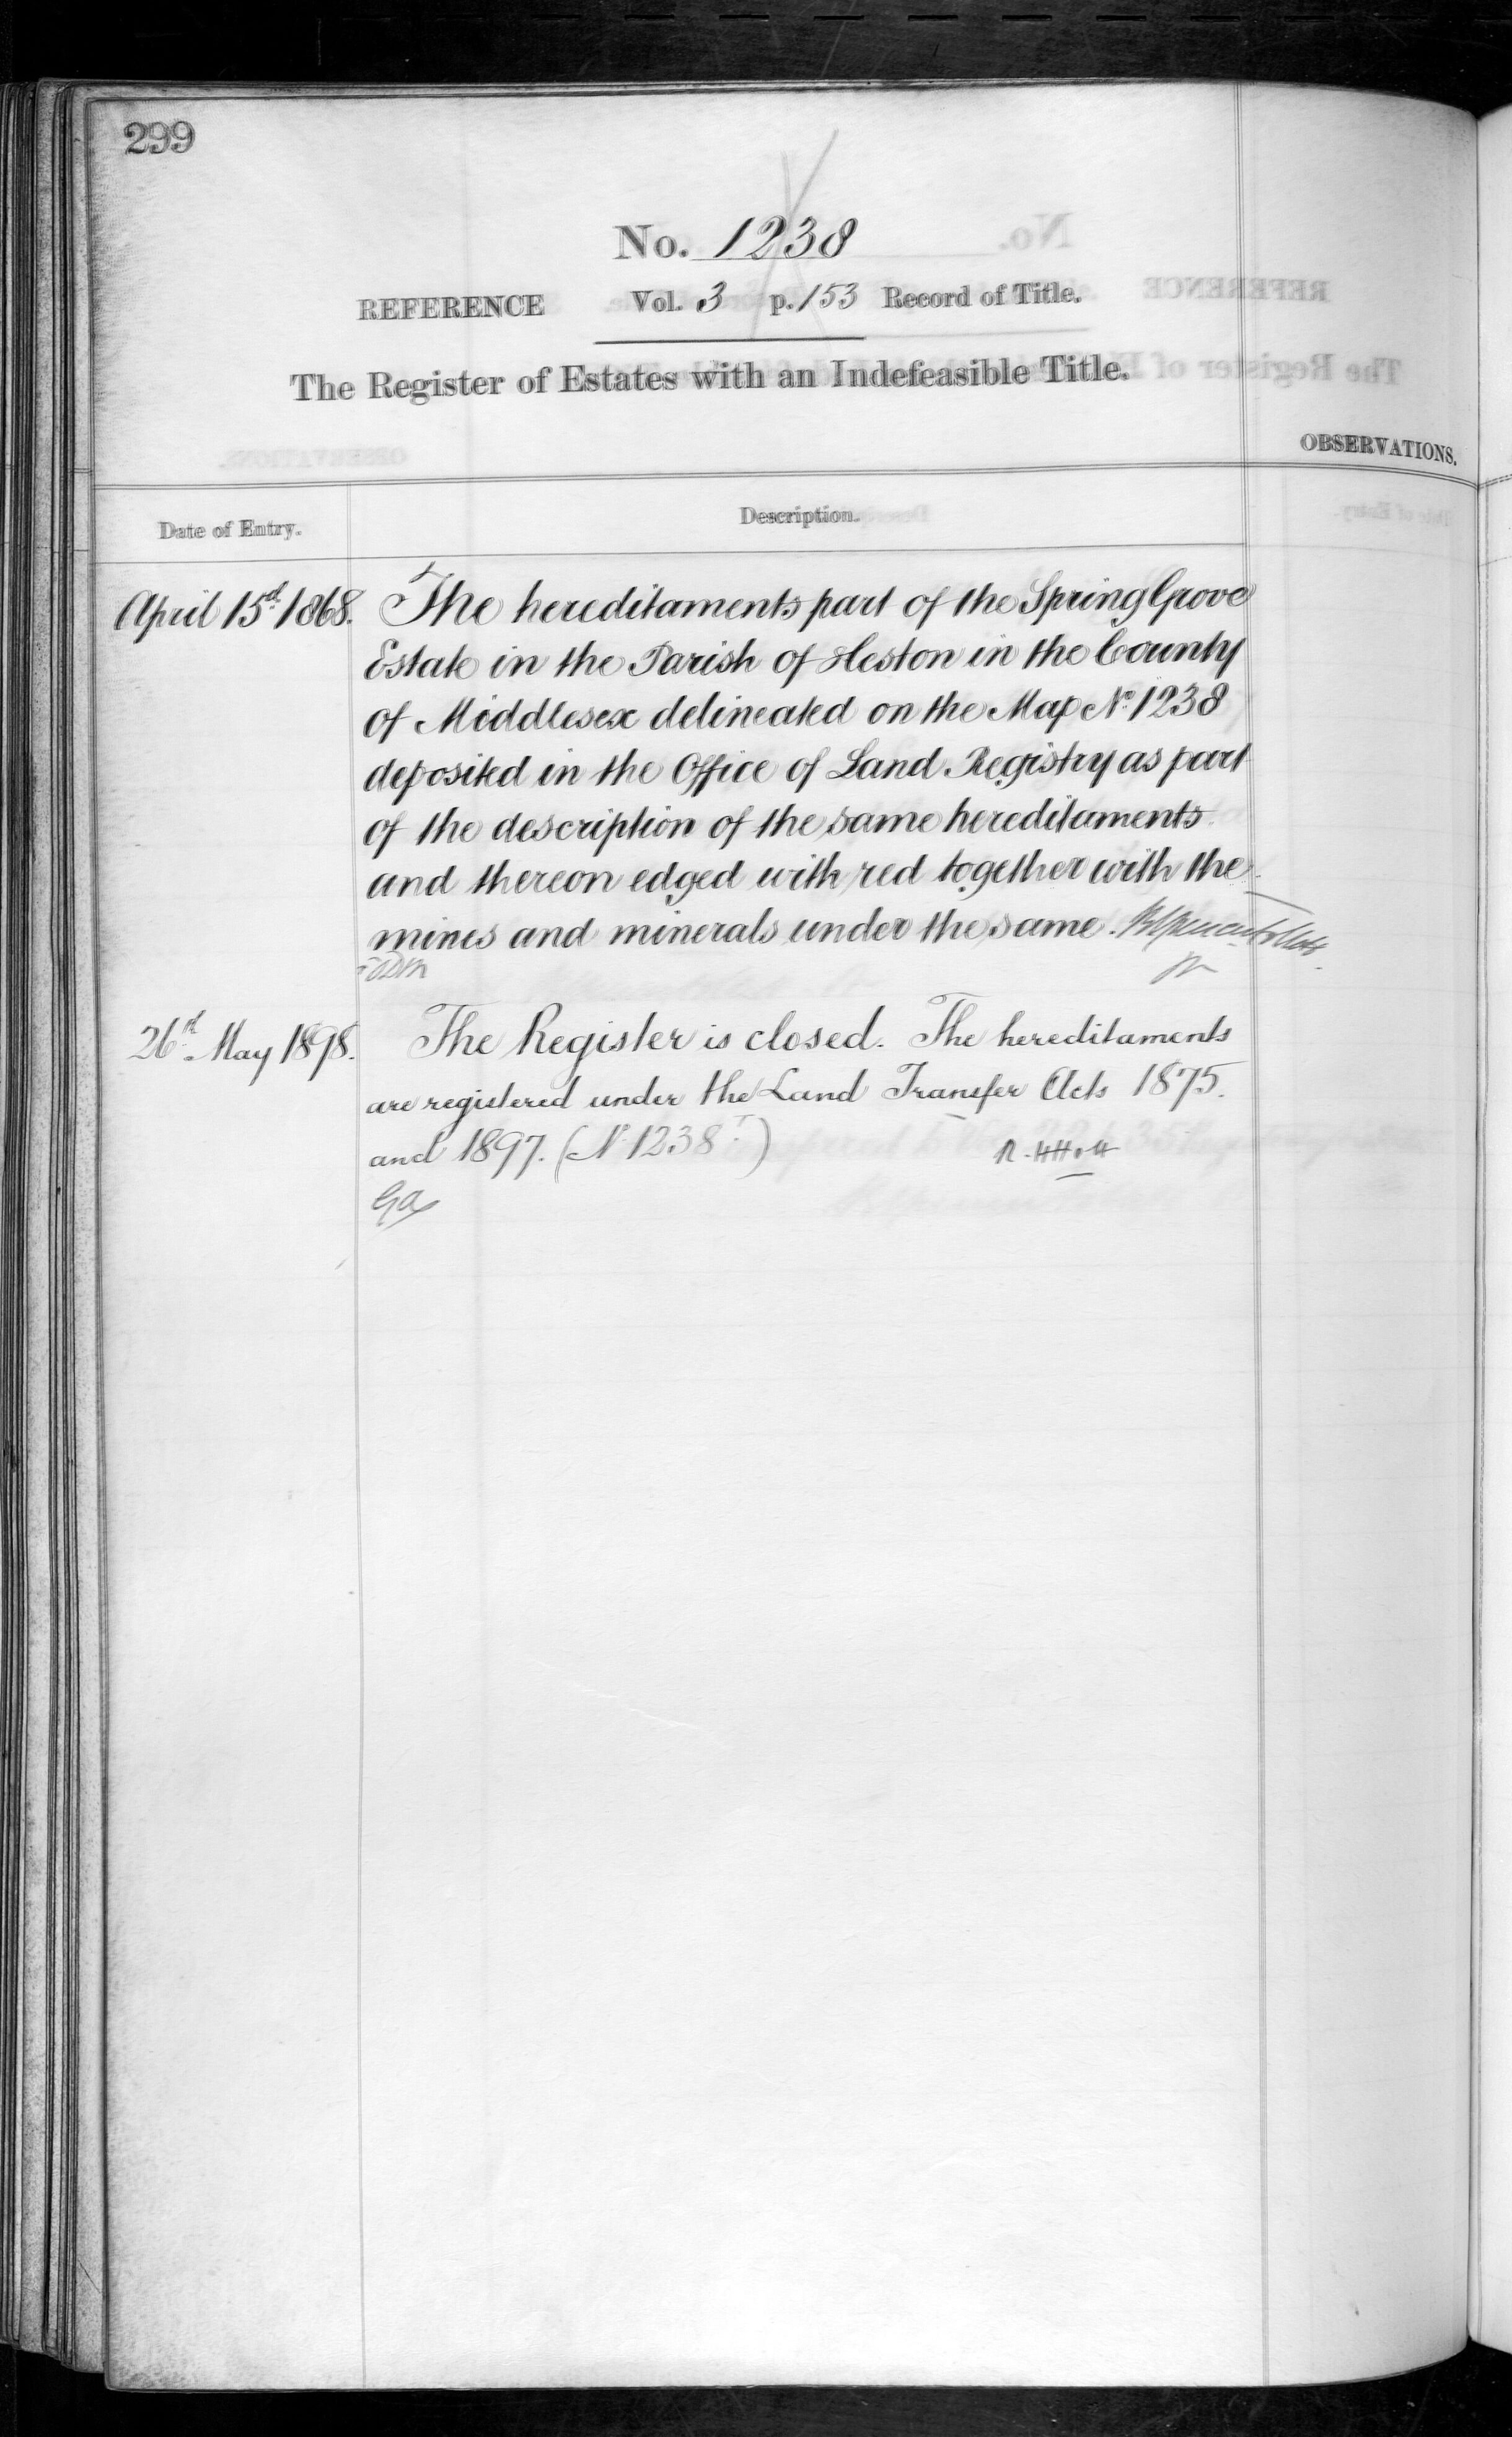 299
No. 1238
REFERENCE Vol. 3 p. 153 Record of Title.
The Register of Estates with an Indefeasible Title.
OBSERVATIONS.
Date of Entry.
Description.
April 15th 1868. The hereditaments part of the Spring Grove
Estate in the Parish of Heston in the County
of Middlesex delineated on the Map No. 1238
deposited in the Office of Land Registry as part
of the description of the same hereditaments
and thereon edged with red together with the
mines and minerals under the same.
26th May 1898. The Register is closed. The hereditaments
are registered under the Land Transfer Acts 1875.
and 1897. (No. 1238)